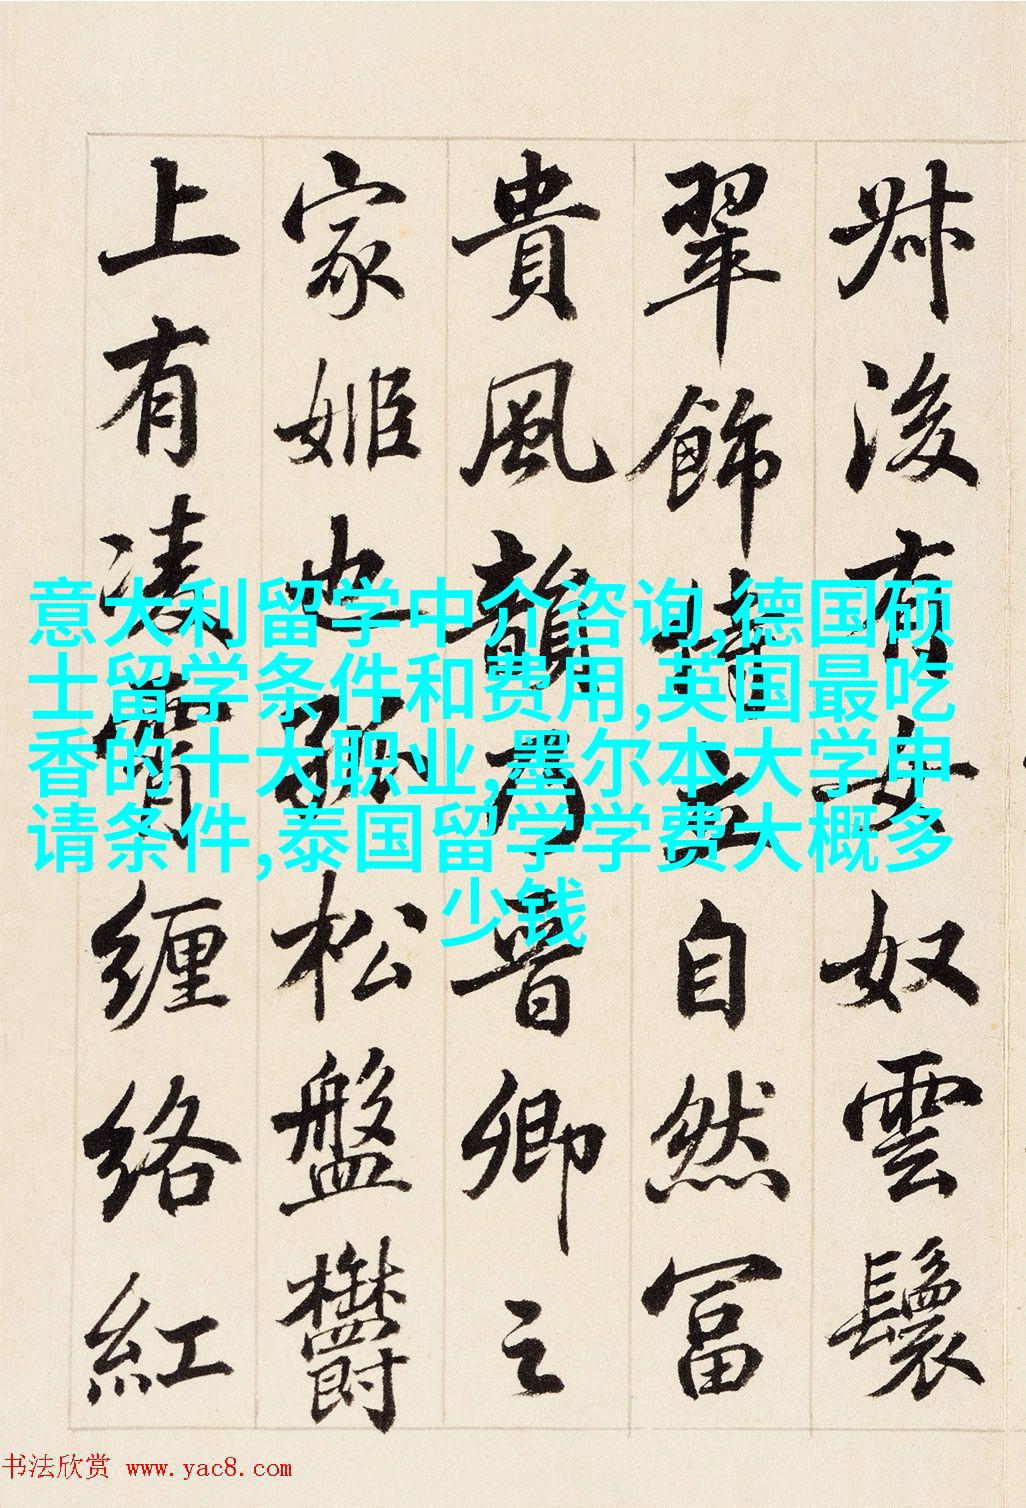 叔後有女奴雲鬟
翠飾倚立自然冨
貴風韻乃晉卿之
家姬也孤松盤欝
上有凌霄纏絡紅
意大利留学中介咨询,德国硕
士留学条件和费用,英国最吃
香的十大职业,墨尔本大学申
请条件,泰国留学学费大概多
少钱
书法欣赏 www.yac8.com